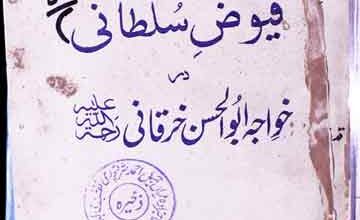 فیوضِ سُلطانی
در
خواجہ ابوالحسن خرقانی رحمۃ اللہ علیہ
ذخیرہ